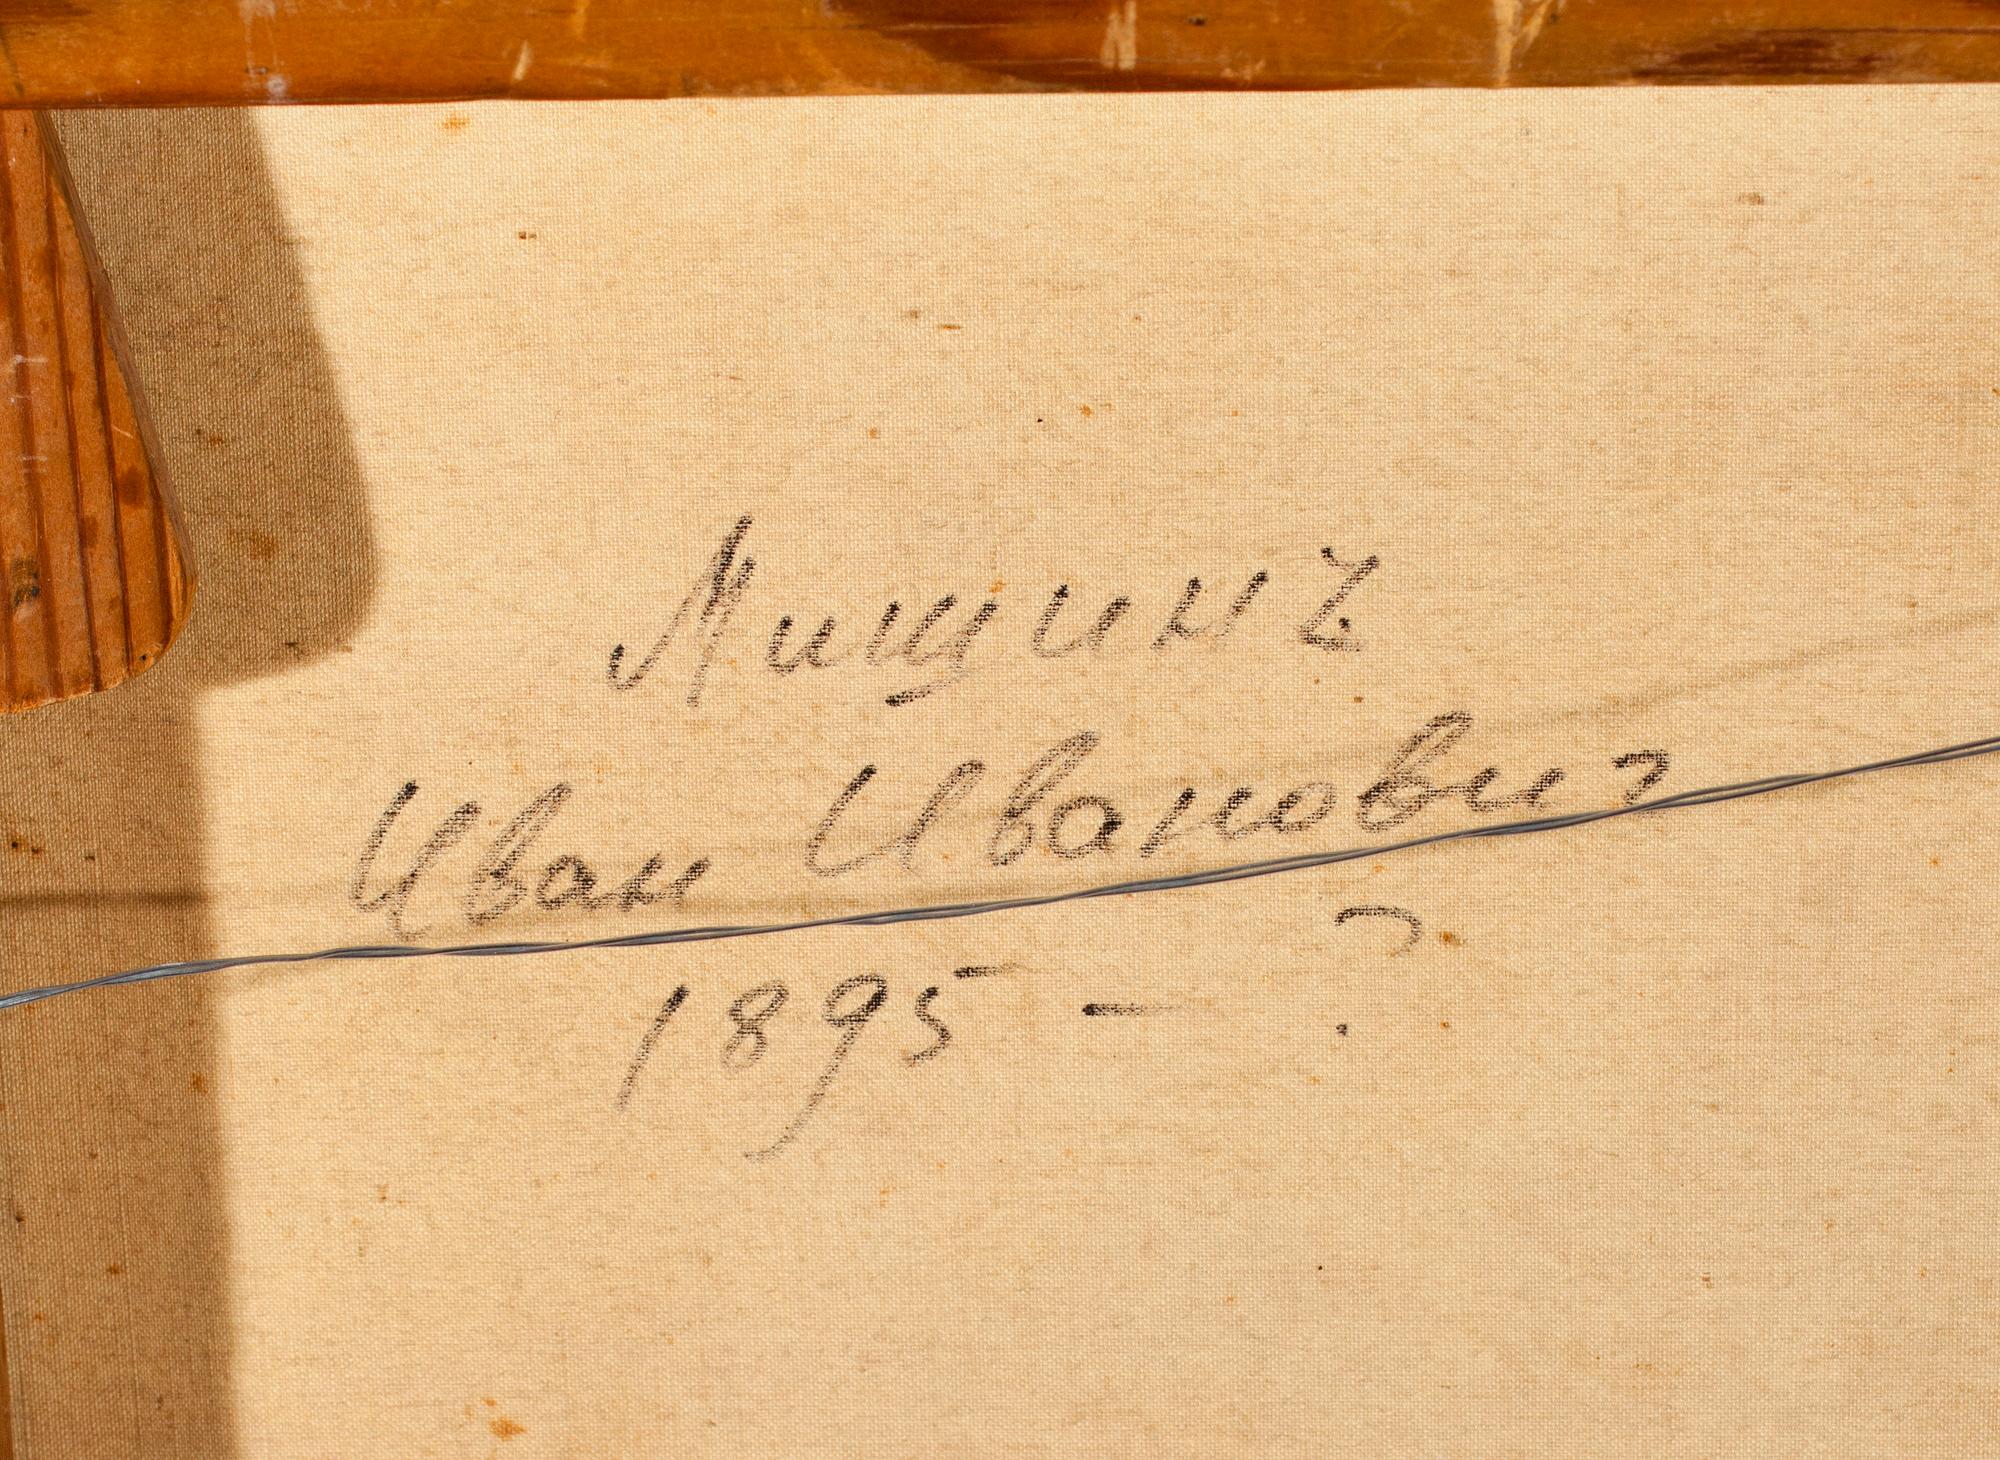 Мишинъ
Иван Иванович
1895 – ?